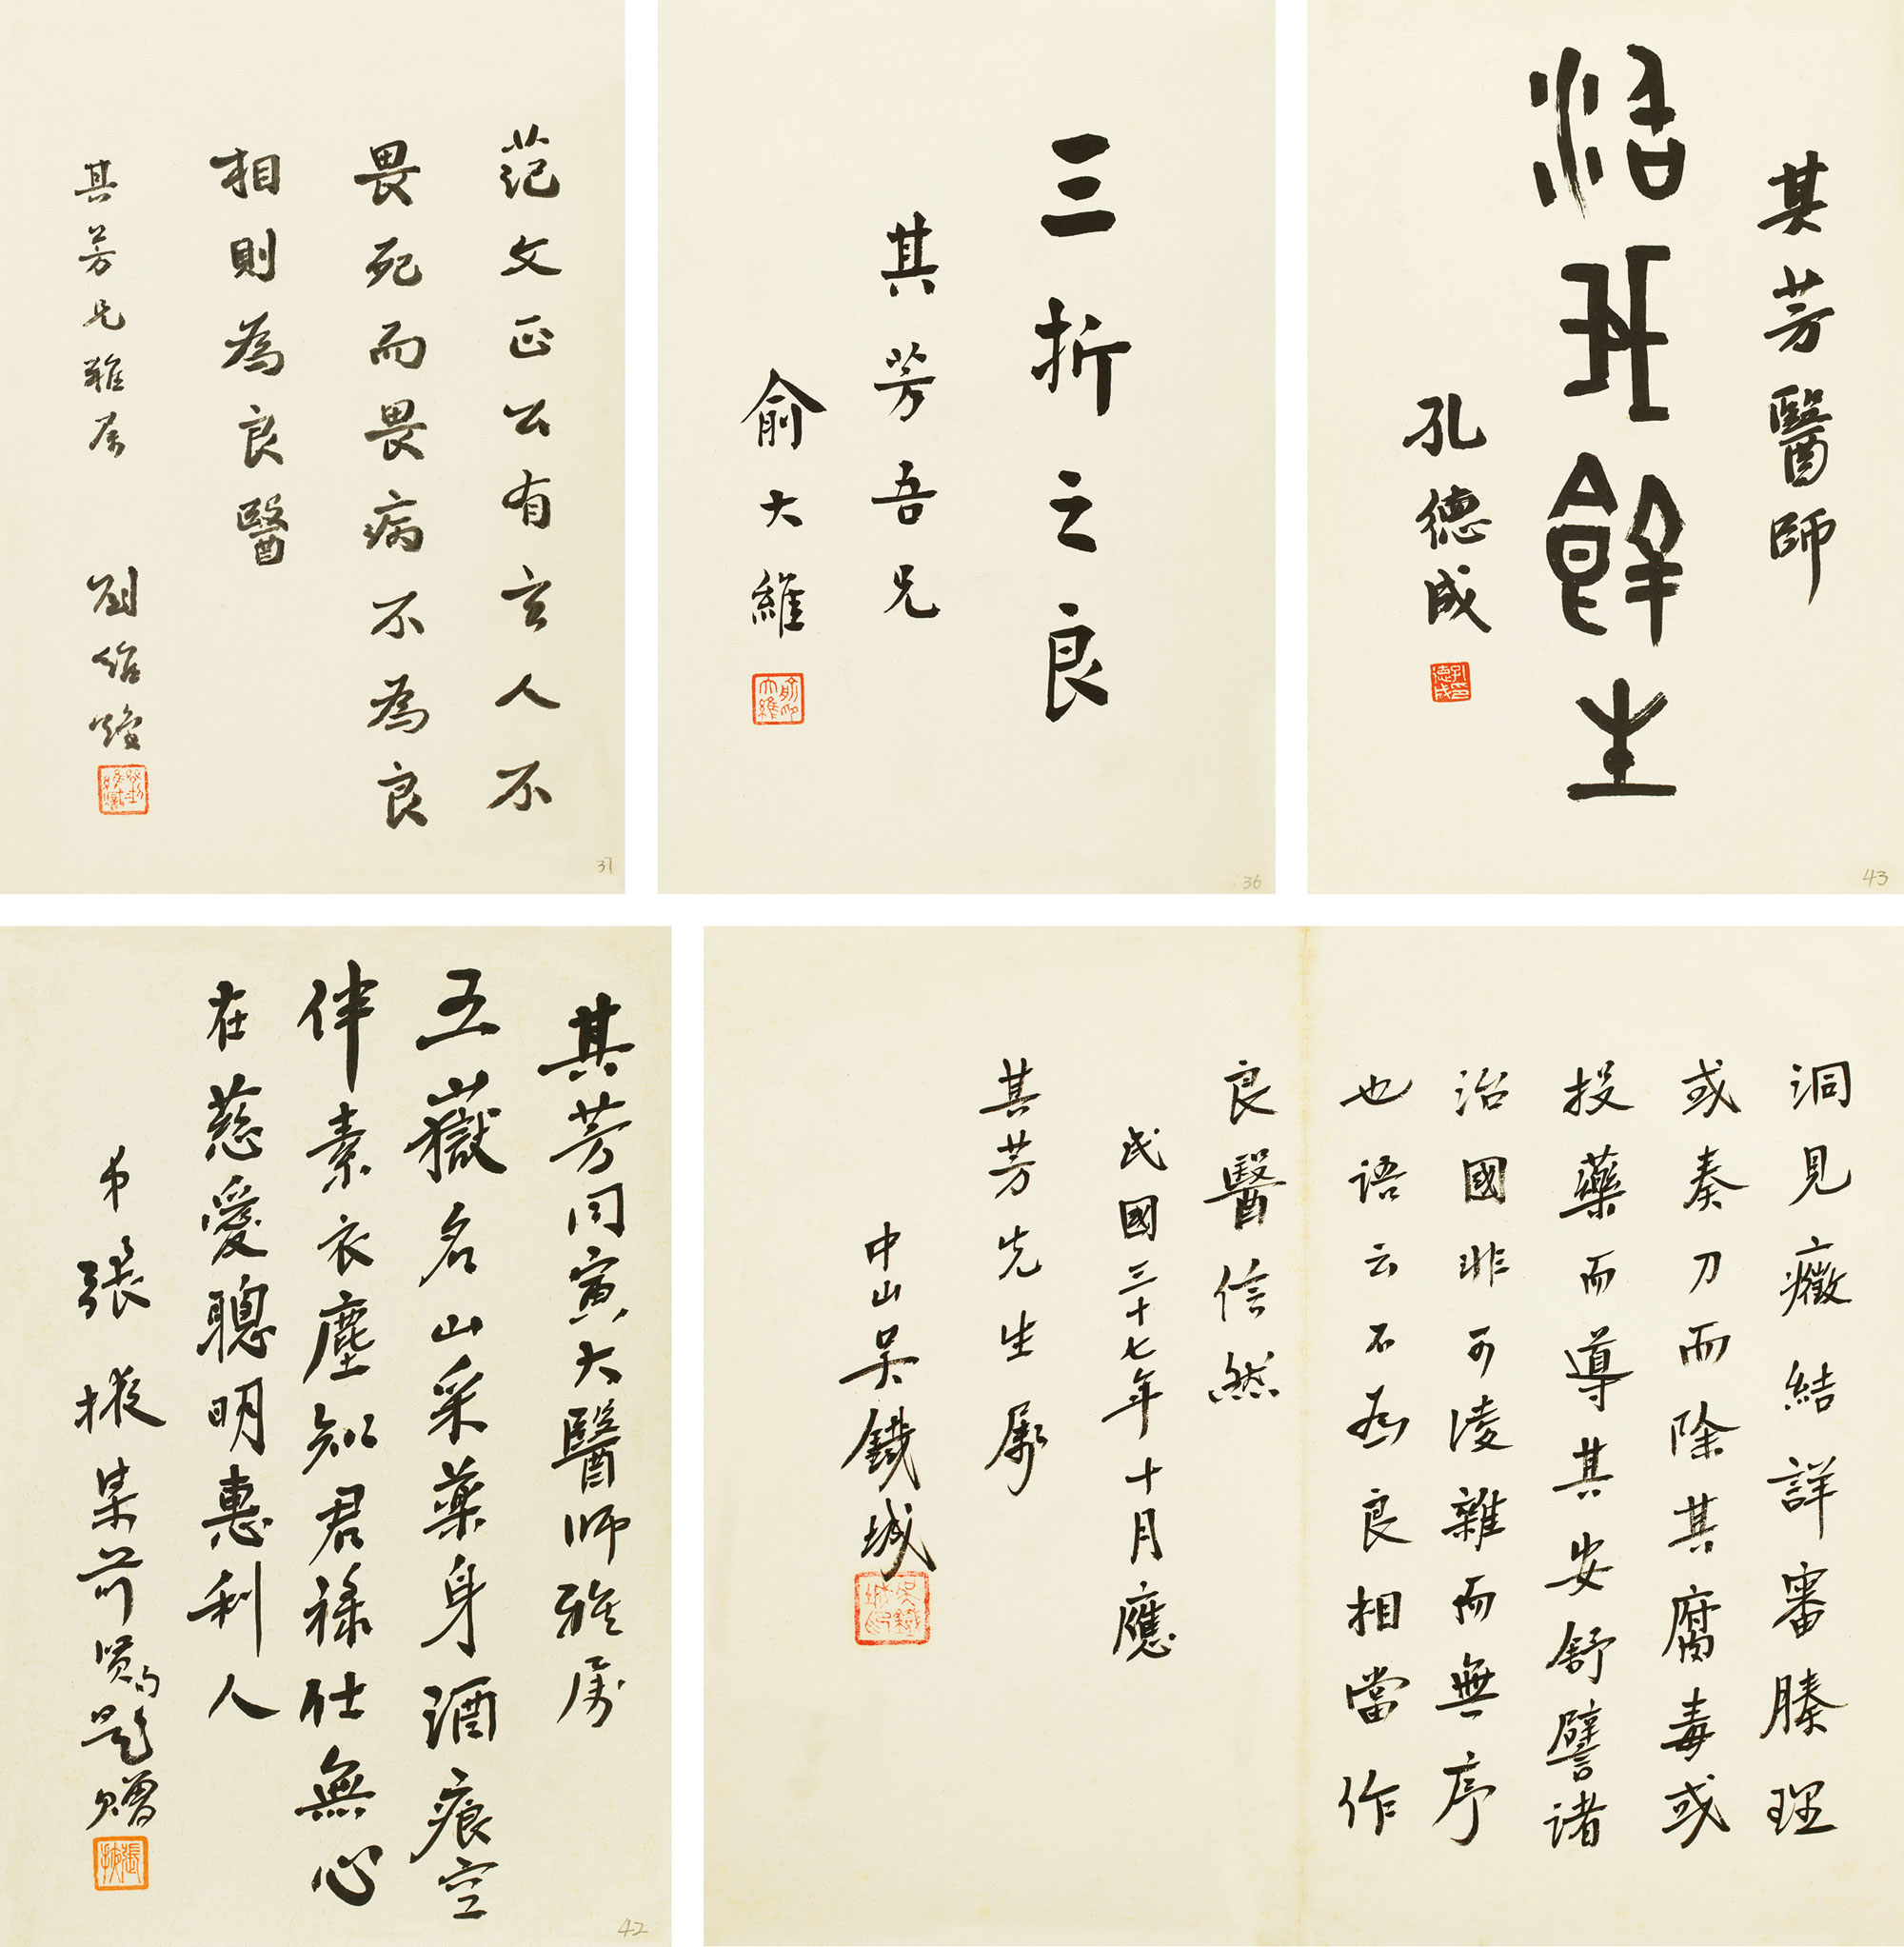 其芳醫師
餘生
孔德成
孔德成印
43
三折之良
其芳吾兄
俞大維
俞大維印
36
范文正公有言人不
畏死而畏病不為良
相則為良醫
其芳兄雅屬
劉
37
洞見癥結詳審腠理
或奏刀而除其腐毒或
投藥而導其安舒譬諸
治國非可淩雜而無序
也語云不為良相當作
良醫信然
民國三十七年十月應
其芳先生屬
中山吳鐵城
吳鐵城印
其芳同寅大醫師雅屬
五嶽名山采藥身酒痕空
伴素衣塵知君祿仕無心
在慈愛聰明惠利人
弟張掖集前賢句題贈
張掖
42